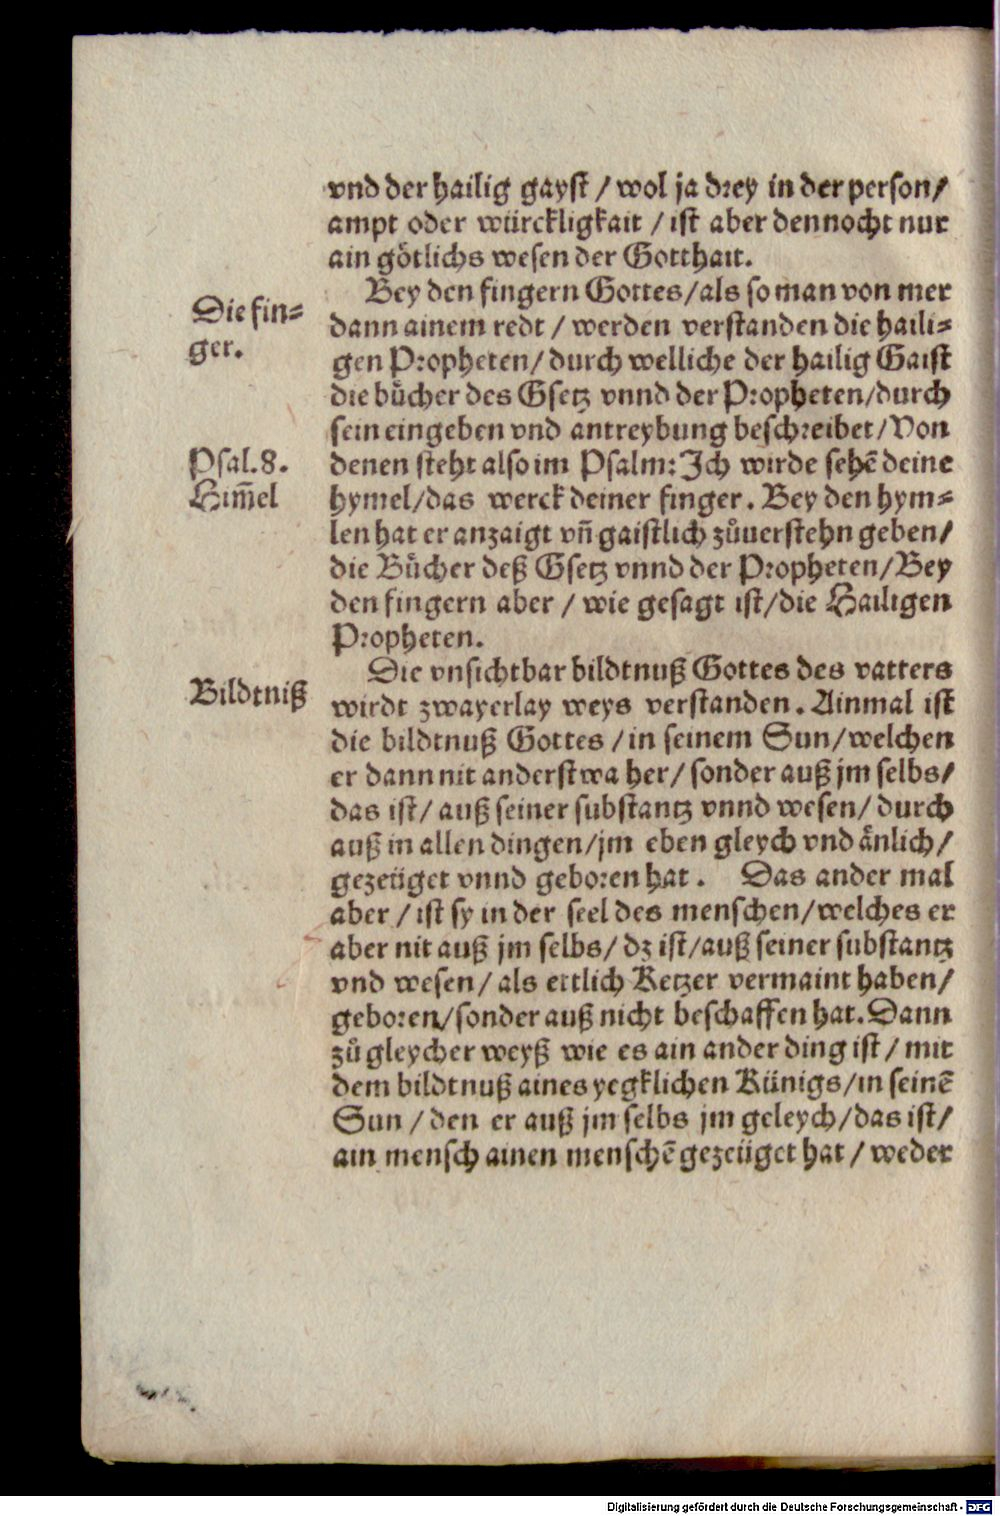 vnd der hailig gayst / wol ja drey in der person/
ampt oder würckligkait / ist aber dennocht nur
ain götlichs wesen der Gotthait.
Die fin⸗
ger.
Bey den fingern Gottes/als so man von mer
dann ainem redt / werden verstanden die haili⸗
gen Propheten/ durch welliche der hailig Gaist
die bůcher des Gsetz vnnd der Propheten/durch
sein eingeben vnd antreybung beschreibet/Von
Psal.8.
Him̄el
denen steht also im Psalm: Ich wirde sehē deine
hymel/das werck deiner finger. Bey den hym⸗
len hat er anzaigt vn̄ gaistlich zůuerstehn geben/
die Bůcher deß Gsetz vnnd der Propheten/Bey
den fingern aber / wie gesagt ist/die Hailigen
Propheten.
Bildtniß
Die vnsichtbar bildtnuß Gottes des vatters
wirdt zwayerlay weys verstanden. Ainmal ist
die bildtnuß Gottes /in seinem Sun/welchen
er dann nit anderstwa her/ sonder auß jm selbs/
das ist/ auß seiner substantz vnnd wesen/ durch
auß in allen dingen/jm eben gleych vnd änlich/
gezeüget vnnd geboren hat. Das ander mal
aber / ist sy in der seel des menschen/welches er
aber nit auß jm selbs/ dz ist/auß seiner substantz
vnd wesen/ als ettlich Ketzer vermaint haben/
geboren/sonder auß nicht beschaffen hat. Dann
zů gleycher weyß wie es ain ander ding ist / mit
dem bildtnuß aines yegklichen Künigs/in seinē
Sun / den er auß jm selbs jm geleych/das ist/
ain mensch ainen menschē gezeüget hat / weder
Digitalisierung gefördert durch die Deutsche Forschungsgemeinschaft - DFG